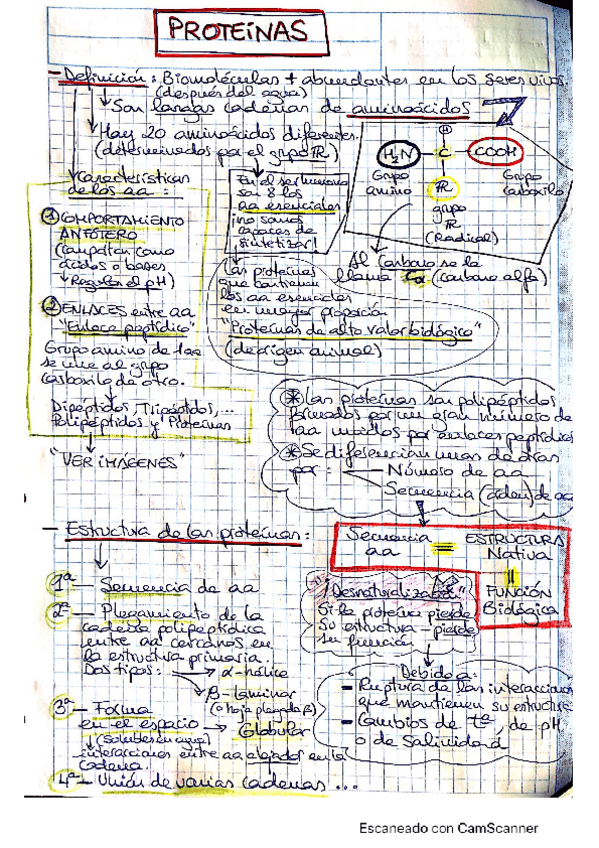 PROTEÍNAS
- Definición: Biomoléculas + abundantes en los seres vivos.
(después del agua)
Son largas cadenas de aminoácidos
Hay 20 aminoácidos diferentes
(determinados por el grupo R)
Características
de los aa:
① COMPORTAMIENTO
ANFÓTERO
(Comportan como
ácidos o bases
Regular el pH)
② ENLACES entre aa
"Enlace peptídico"
Grupo amino de 1 aa
se une al grupo
carboxilo de otro.
Dipéptidos, Tripéptidos, ...
Polipéptidos y Proteínas
"VER IMÁGENES"
En el ser humano
son 8 los
aa esenciales
¡no somos
capaces de
sintetizar!
H
H₂N C COOH
Grupo
amino
R
grupo
R
(Radical)
Grupo
carboxilo
Al Carbono se le
llama Cα (carbono alfa)
Las proteínas
que contienen
los aa esenciales
en mayor proporción
"Proteínas de alto valor biológico"
(de origen animal)
* Las proteínas son polipéptidos
formados por un gran número de
aa unidos por enlaces peptídicos
* Se diferencian unas de otras
por: Número de aa
Secuencia (orden) de aa
- Estructura de las proteínas:
Secuencia = ESTRUCTURA
aa Nativa
=
FUNCIÓN
Biológica
1ª - Secuencia de aa
2ª - Plegamiento de la
cadena polipeptídica
entre aa cercanos en
la estructura primaria.
Dos tipos: α-hélice
β-laminar
(o hoja plegada β)
3ª - Forma
en el espacio → Globular
(Solubles en agua)
interacciones entre aa alejados en la
cadena.
4ª - Unión de varias cadenas ...
Si la proteína pierde
su estructura pierde
su función
Debido a:
- Ruptura de las interacciones
que mantienen su estructura
- Cambios de tª, de pH
o de Salinidad
Escaneado con CamScanner